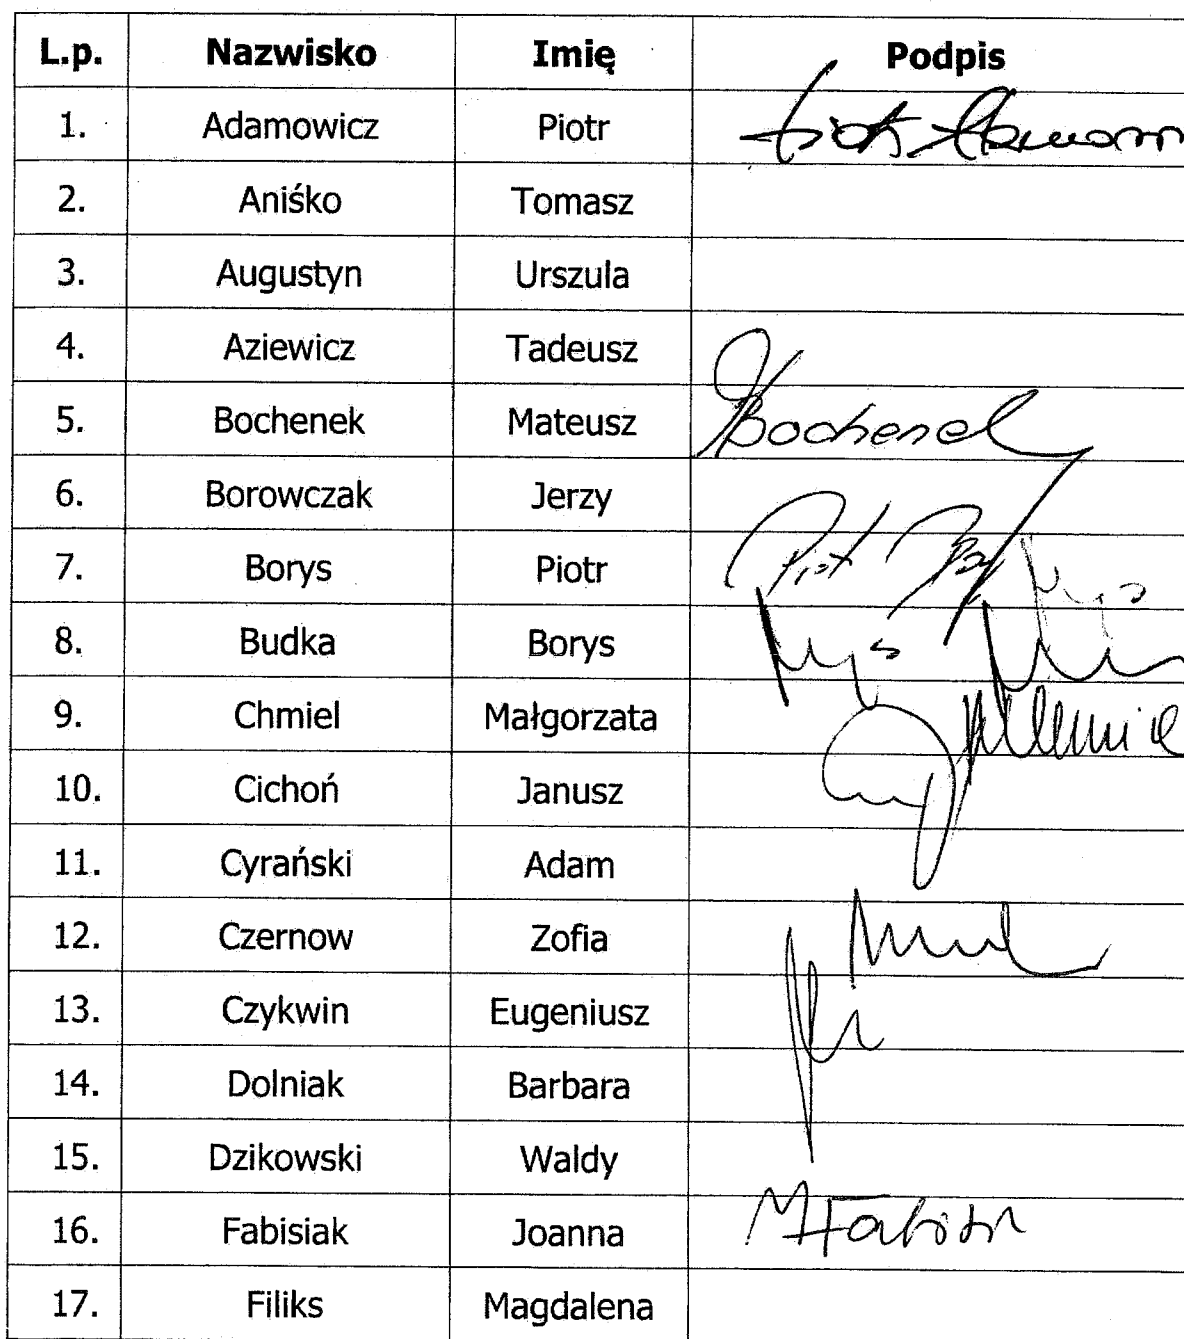 L.p. Nazwisko Imię Podpis
1. Adamowicz Piotr
2. Aniśko Tomasz
3. Augustyn Urszula
4. Aziewicz Tadeusz
5. Bochenek Mateusz Bochenek
6. Borowczak Jerzy
7. Borys Piotr Piotr
8. Budka Borys
9. Chmiel Małgorzata
10. Cichoń Janusz
11. Cyrański Adam
12. Czernow Zofia
13. Czykwin Eugeniusz
14. Dolniak Barbara
15. Dzikowski Waldy
16. Fabisiak Joanna
17. Filiks Magdalena